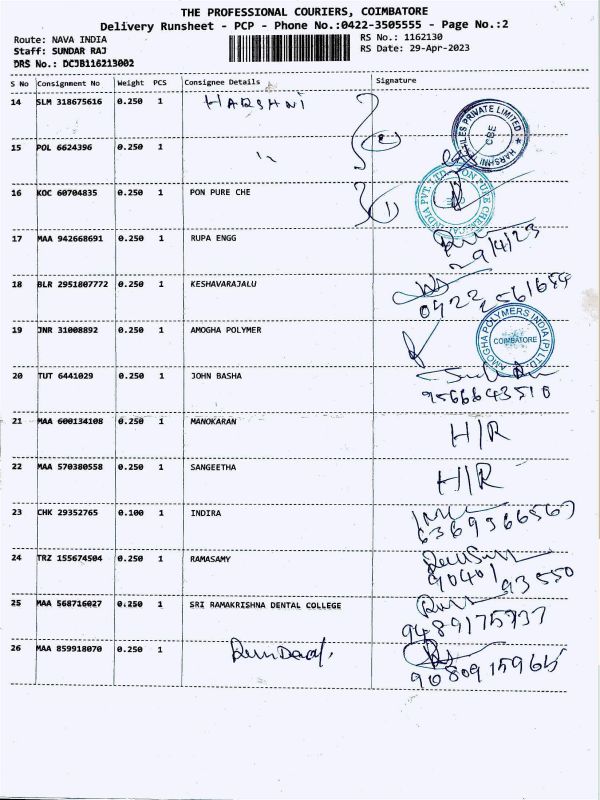 THE PROFESSIONAL COURIERS, COIMBATORE
Delivery Runsheet - PCP - Phone No.:0422-3505555 - Page No.:2
Route: NAVA INDIA
Staff: SUNDAR RAJ
DRS No.: DCJB116213002
RS No.: 1162130
RS Date: 29-Apr-2023
S No Consignment No Weight PCS Consignee Details Signature
14 SLM 318675616 0.250 1 HARSHNI
15 POL 6624396 0.250 1 (2)
HARSHNI TEXTILES PRIVATE LIMITED CBE
16 KOC 60704835 0.250 1 PON PURE CHE (1)
PON PURE CHEMICAL INDIA PVT. LTD.
17 MAA 942668691 0.250 1 RUPA ENGG
29/4/23
18 BLR 2951807772 0.250 1 KESHAVARAJALU
0422 2561684
19 JNR 31008892 0.250 1 AMOGHA POLYMER
AMOGHA POLYMERS INDIA (P) LTD. COIMBATORE
20 TUT 6441029 0.250 1 JOHN BASHA
9566643510
21 MAA 600134108 0.250 1 MANOKARAN H/R
22 MAA 570380558 0.250 1 SANGEETHA H/R
23 CHK 29352765 0.100 1 INDIRA
6369366567
24 TRZ 155674504 0.250 1 RAMASAMY
90401 93550
25 MAA 568716027 0.250 1 SRI RAMAKRISHNA DENTAL COLLEGE
9489175937
26 MAA 859918070 0.250 1
9080915965